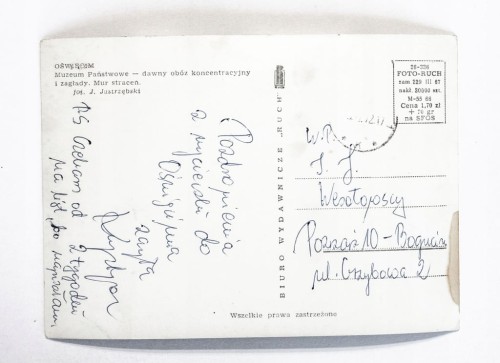 OŚWIĘCIM
Muzeum Państwowe — dawny obóz koncentracyjny
i zagłady. Mur straceń.
fot. J. Jastrzębski
Pozdrowienia
z wycieczki do
Oświęcimia
PS Czekam od 2 tygodni
na list, bo napisałam.
BIURO WYDAWNICZE „RUCH”
26-226
FOTO-RUCH
zam 220 III 67
nakł. 20000 egz.
M-55 66
Cena 1,70 zł
+ 20 gr
na SFOS
W.P.
J. J.
Wesołowscy
Poznań 10 -
ul. Grzybowa 2
Wszelkie prawa zastrzeżone